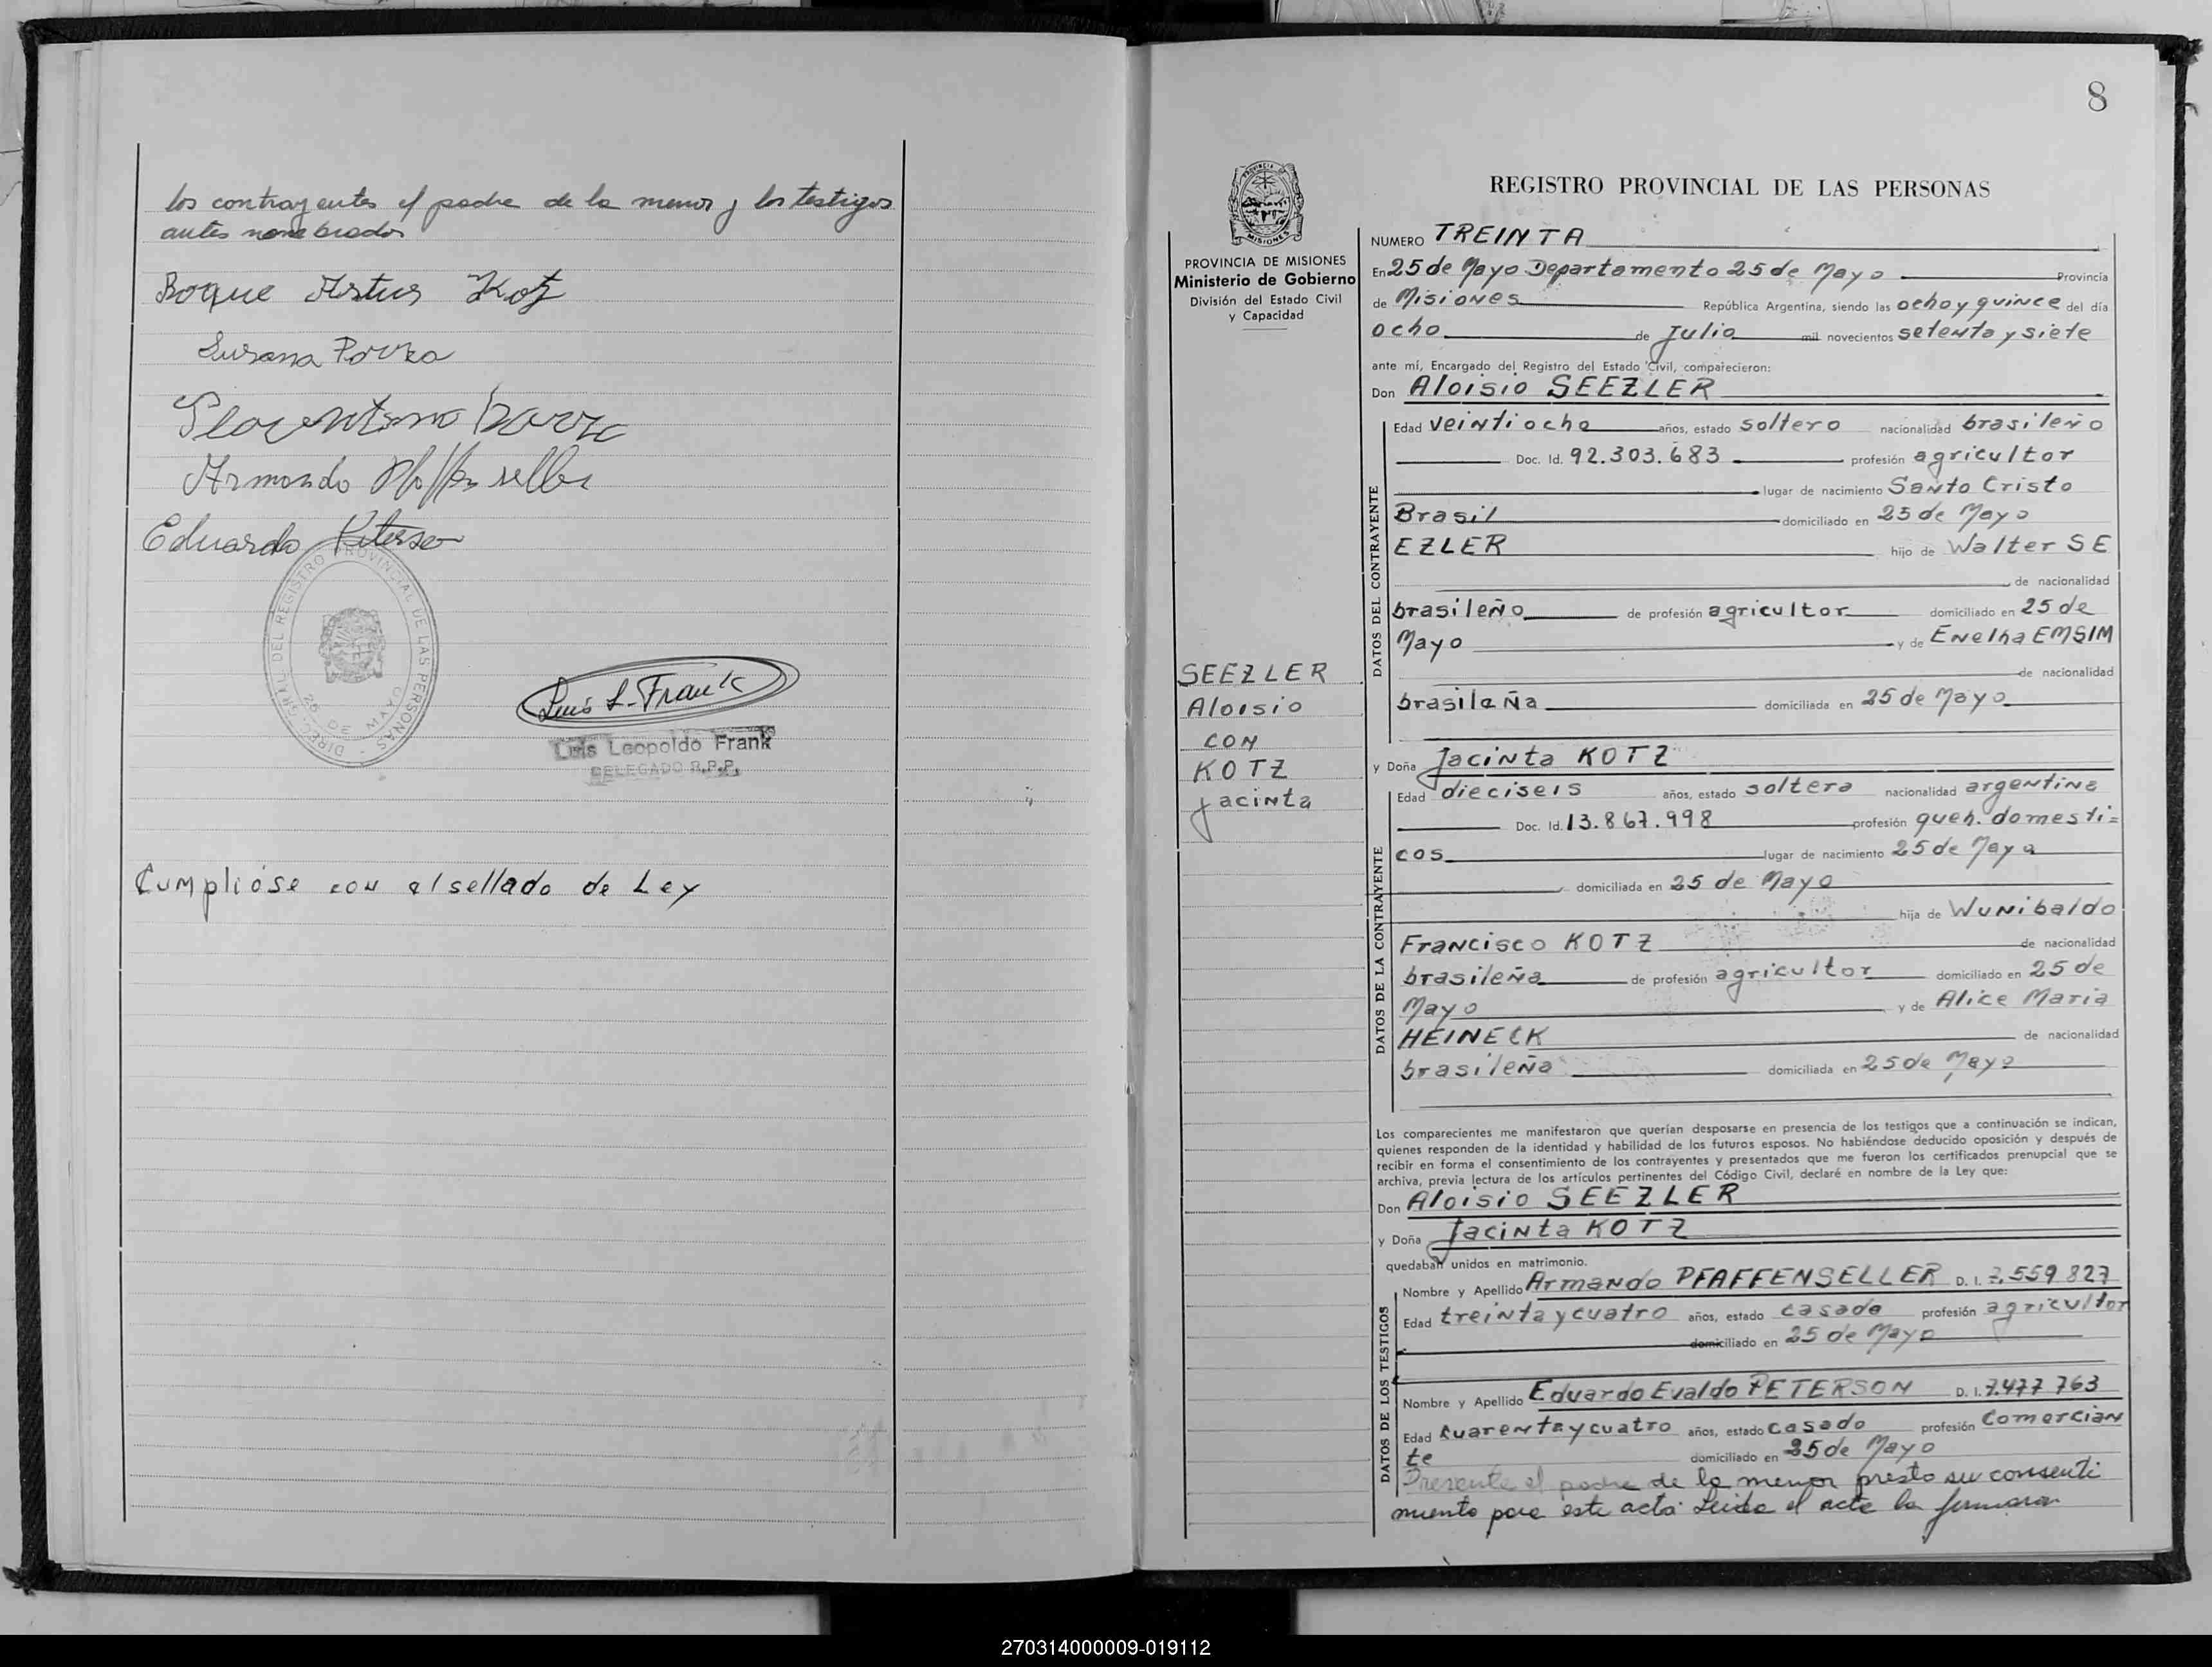 los contrayentes el padre de la menor y los testigos
antes nombrados
Roque Artur Kotz
Susana
Armando
Eduardo Peterson
DIREC. GRAL. DEL REGISTRO PROVINCIAL DE LAS PERSONAS
25 DE MAYO
Luis L. Frank
Luis Leopoldo Frank
DELEGADO R.P.P.
Cumplióse con el sellado de Ley
8
PROVINCIA DE MISIONES
Ministerio de Gobierno
División del Estado Civil
y Capacidad
SEEZLER
Aloisio
CON
KOTZ
Jacinta
REGISTRO PROVINCIAL DE LAS PERSONAS
NUMERO TREINTA
En 25 de Mayo Departamento 25 de Mayo Provincia
de Misiones República Argentina, siendo las ocho y quince del día
ocho de Julio mil novecientos setenta y siete
ante mí, Encargado del Registro del Estado Civil, comparecieron:
Don Aloisio SEEZLER
DATOS DEL CONTRAYENTE
Edad veintiocho años, estado soltero nacionalidad brasileño
Doc. Id. 92.303.683 profesión agricultor
lugar de nacimiento Santo Cristo
Brasil domiciliado en 25 de Mayo
EZLER hijo de Walter SE
de nacionalidad
brasileño de profesión agricultor domiciliado en 25 de
Mayo y de Enelha EMSIM
de nacionalidad
brasileña domiciliada en 25 de Mayo
y Doña Jacinta KOTZ
DATOS DE LA CONTRAYENTE
Edad dieciseis años, estado soltera nacionalidad argentina
Doc. Id. 13.867.998 profesión queh. domesti=
cos lugar de nacimiento 25 de Mayo
domiciliada en 25 de Mayo
hija de Wunibaldo
Francisco KOTZ de nacionalidad
brasileña de profesión agricultor domiciliado en 25 de
Mayo y de Alice Maria
HEINECK de nacionalidad
brasileña domiciliada en 25 de Mayo
Los comparecientes me manifestaron que querían desposarse en presencia de los testigos que a continuación se indican,
quienes responden de la identidad y habilidad de los futuros esposos. No habiéndose deducido oposición y después de
recibir en forma el consentimiento de los contrayentes y presentados que me fueron los certificados prenupcial que se
archiva, previa lectura de los artículos pertinentes del Código Civil, declaré en nombre de la Ley que:
Don Aloisio SEEZLER
y Doña Jacinta KOTZ
quedaban unidos en matrimonio.
DATOS DE LOS TESTIGOS
Nombre y Apellido Armando PFAFFENSELLER D. I. 7.559.827
Edad treinta y cuatro años, estado casado profesión agricultor
domiciliado en 25 de Mayo
Nombre y Apellido Eduardo Evaldo PETERSON D. I. 7.477.763
Edad cuarenta y cuatro años, estado casado profesión Comercian
te domiciliado en 25 de Mayo
Presente el padre de la menor presto su consenti
miento para este acto. Leida el acta la firmaron
270314000009-019112